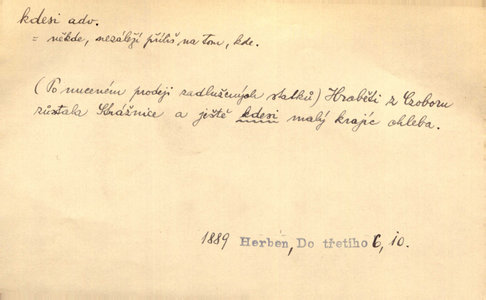 kdesi adv.
= někde, nezáleží příliš na tom, kde.
(Po nuceném prodeji zadlužených statků) Hraběti z Czoboru
zůstala Strážnice a ještě kdesi malý krajíc chleba.
1889 Herben, Do třetího 6, 10.